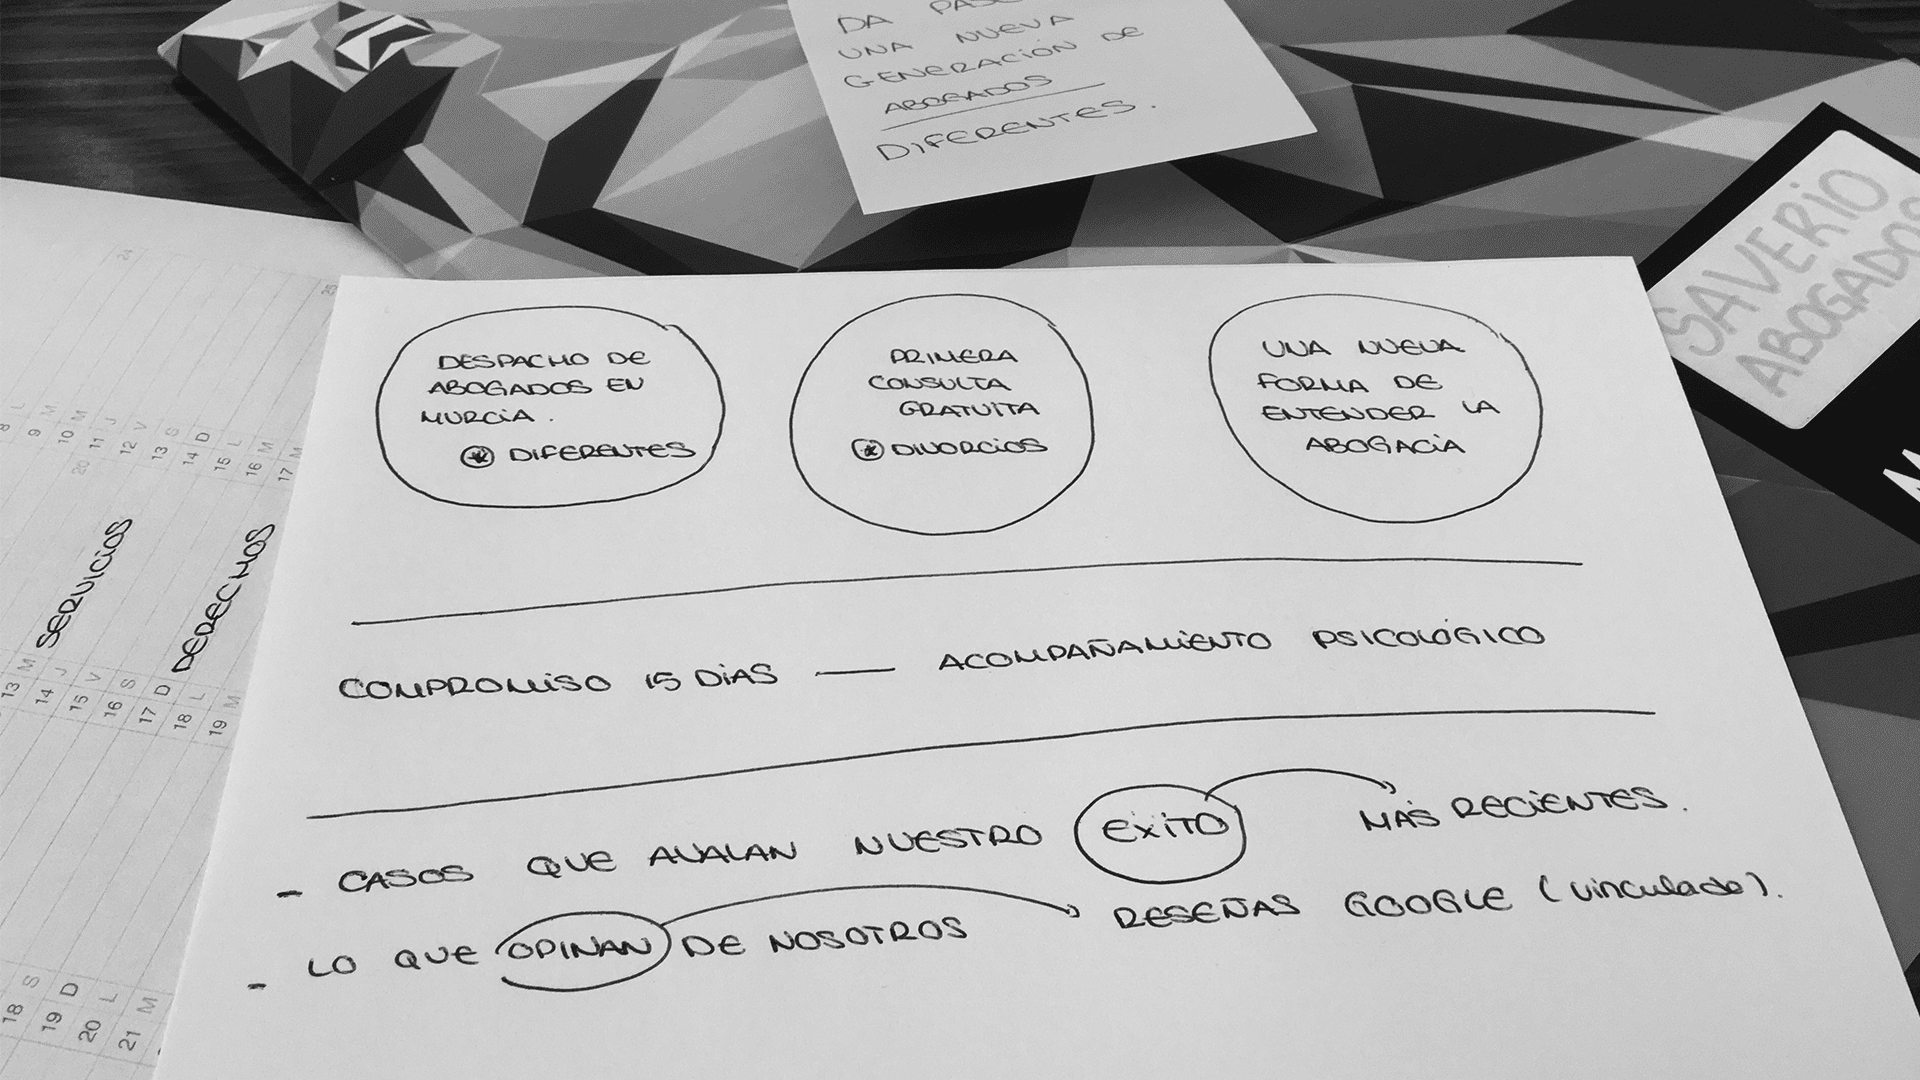 DA
UNA NUEVA
GENERACIÓN DE
ABOGADOS
DIFERENTES.
SAVERIO
ABOGADOS
DESPACHO DE
ABOGADOS EN
MURCIA.
DIFERENTES
PRIMERA
CONSULTA
GRATUITA
DIVORCIOS
UNA NUEVA
FORMA DE
ENTENDER LA
ABOGACIA
COMPROMISO 15 DIAS — ACOMPAÑAMIENTO PSICOLÓGICO
- CASOS QUE AVALAN NUESTRO EXITO MÁS RECIENTES.
- LO QUE OPINAN DE NOSOTROS RESEÑAS GOOGLE (vinculado).
SERVICIOS
DERECHOS
24
25
8 L
9 M
10 M
11 J
12 V
13 S
14 D
15 L
16 M
17 M
20
13 M
14 J
15 V
16 S
17 D
18 L
19 M
18 S
19 D
20 L
21 M